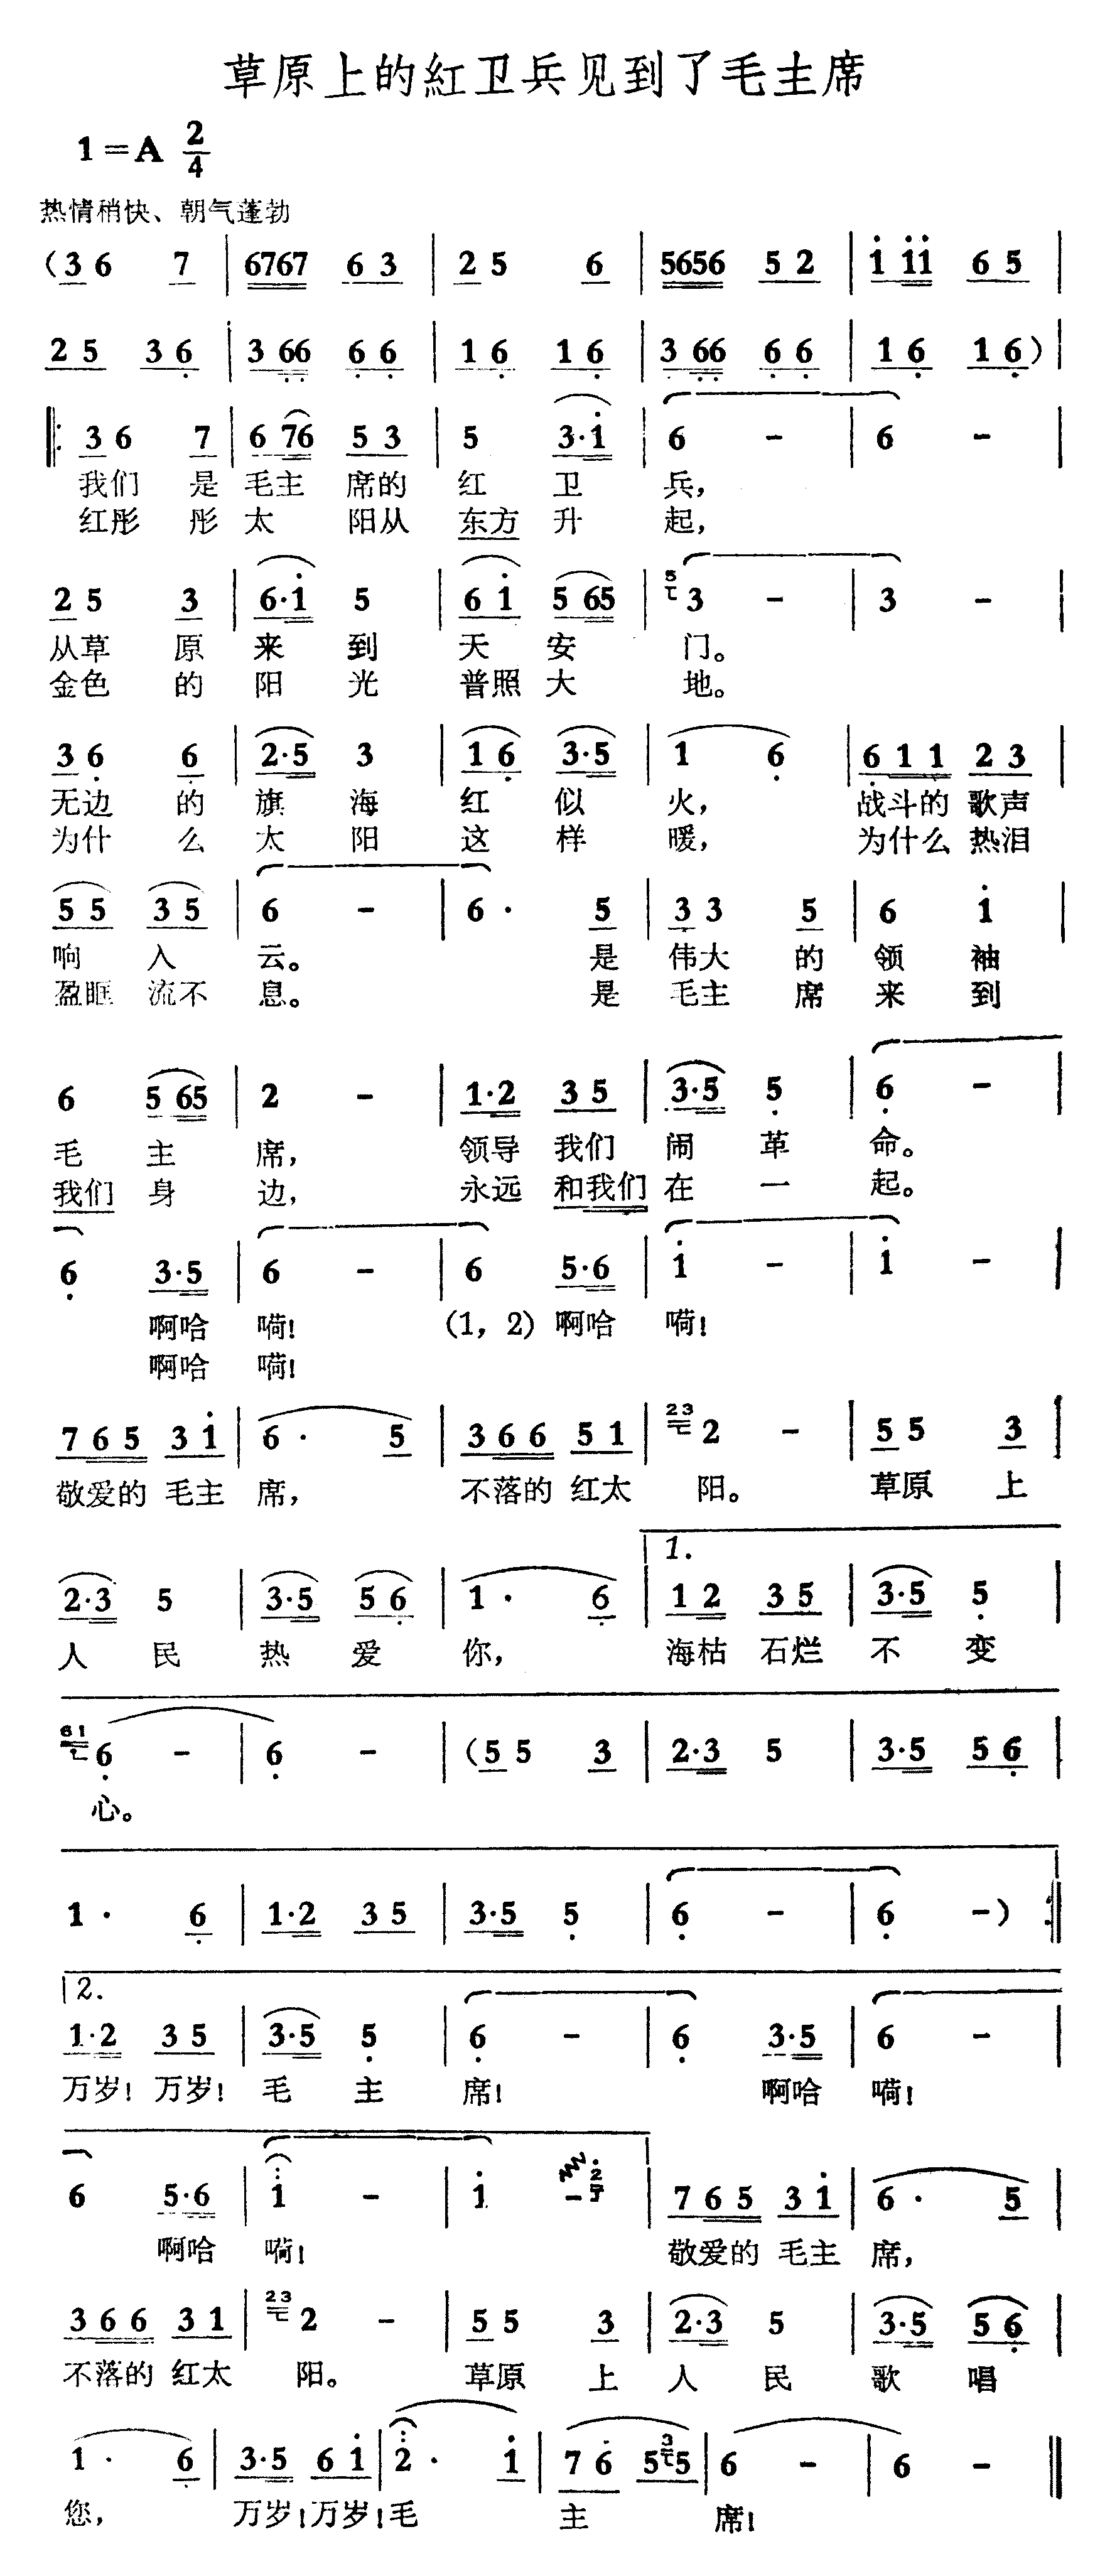 草原上的紅卫兵见到了毛主席
1=A 2/4
热情稍快、朝气蓬勃
(3 6 7 | 6767 6 3 | 2 5 6 | 5656 5 2 | i ii 6 5 |
2 5 3 6 | 3 66 6 6 | 1 6 1 6 | 3 66 6 6 | 1 6 1 6) |
‖: 3 6 7 | 6 76 5 3 | 5 3·i | 6 - | 6 - |
我们 是 毛主 席的 红 卫 兵,
红彤 彤 太 阳从 东方 升 起,
2 5 3 | 6·i 5 | 6 i 5 65 | 5 3 - | 3 - |
从草 原 来 到 天 安 门。
金色 的 阳 光 普照 大 地。
3 6 6 | 2·5 3 | 1 6 3·5 | 1 6 | 6 1 1 2 3 |
无边 的 旗 海 红 似 火, 战斗的 歌声
为什 么 太 阳 这 样 暖, 为什么 热泪
5 5 3 5 | 6 - | 6 · 5 | 3 3 5 | 6 i |
响 入 云。 是 伟大 的 领 袖
盈眶 流不 息。 是 毛主 席 来 到
6 5 65 | 2 - | 1·2 3 5 | 3·5 5 | 6 - |
毛 主 席, 领导 我们 闹 革 命。
我们 身 边, 永远 和我们 在 一 起。
6 3·5 | 6 - | 6 5·6 | i - | i - |
啊哈 嗬! (1, 2) 啊哈 嗬!
啊哈 嗬!
7 6 5 3 i | 6 · 5 | 3 6 6 5 1 | 23 2 - | 5 5 3 |
敬爱的 毛主 席, 不落的 红太 阳。 草原 上
1.
2·3 5 | 3·5 5 6 | 1 · 6 | 1 2 3 5 | 3·5 5 |
人 民 热 爱 你, 海枯 石烂 不 变
61 6 - | 6 - | (5 5 3 | 2·3 5 | 3·5 5 6 |
心。
1 · 6 | 1·2 3 5 | 3·5 5 | 6 - | 6 -) :‖
2.
1·2 3 5 | 3·5 5 | 6 - | 6 3·5 | 6 - |
万岁! 万岁! 毛 主 席! 啊哈 嗬!
6 5·6 | i - | i - 2 | 7 6 5 3 i | 6 · 5 |
啊哈 嗬! 敬爱的 毛主 席,
3 6 6 3 1 | 23 2 - | 5 5 3 | 2·3 5 | 3·5 5 6 |
不落的 红太 阳。 草原 上 人 民 歌 唱
1 · 6 | 3·5 6 i | 2 · i | 7 6 5 3 5 | 6 - | 6 - ‖
您, 万岁!万岁!毛 主 席!